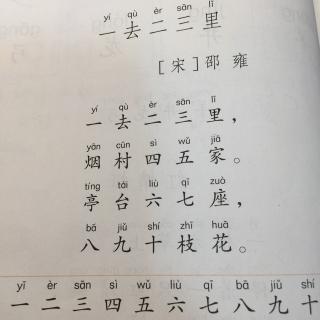 yí qù èr sān lǐ
一去二三里
[宋]邵雍
yí qù èr sān lǐ
一去二三里，
yān cūn sì wǔ jiā
烟村四五家。
tíng tái liù qī zuò
亭台六七座，
bā jiǔ shí zhī huā
八九十枝花。
yī èr sān sì wǔ liù qī bā jiǔ shí
一二三四五六七八九十